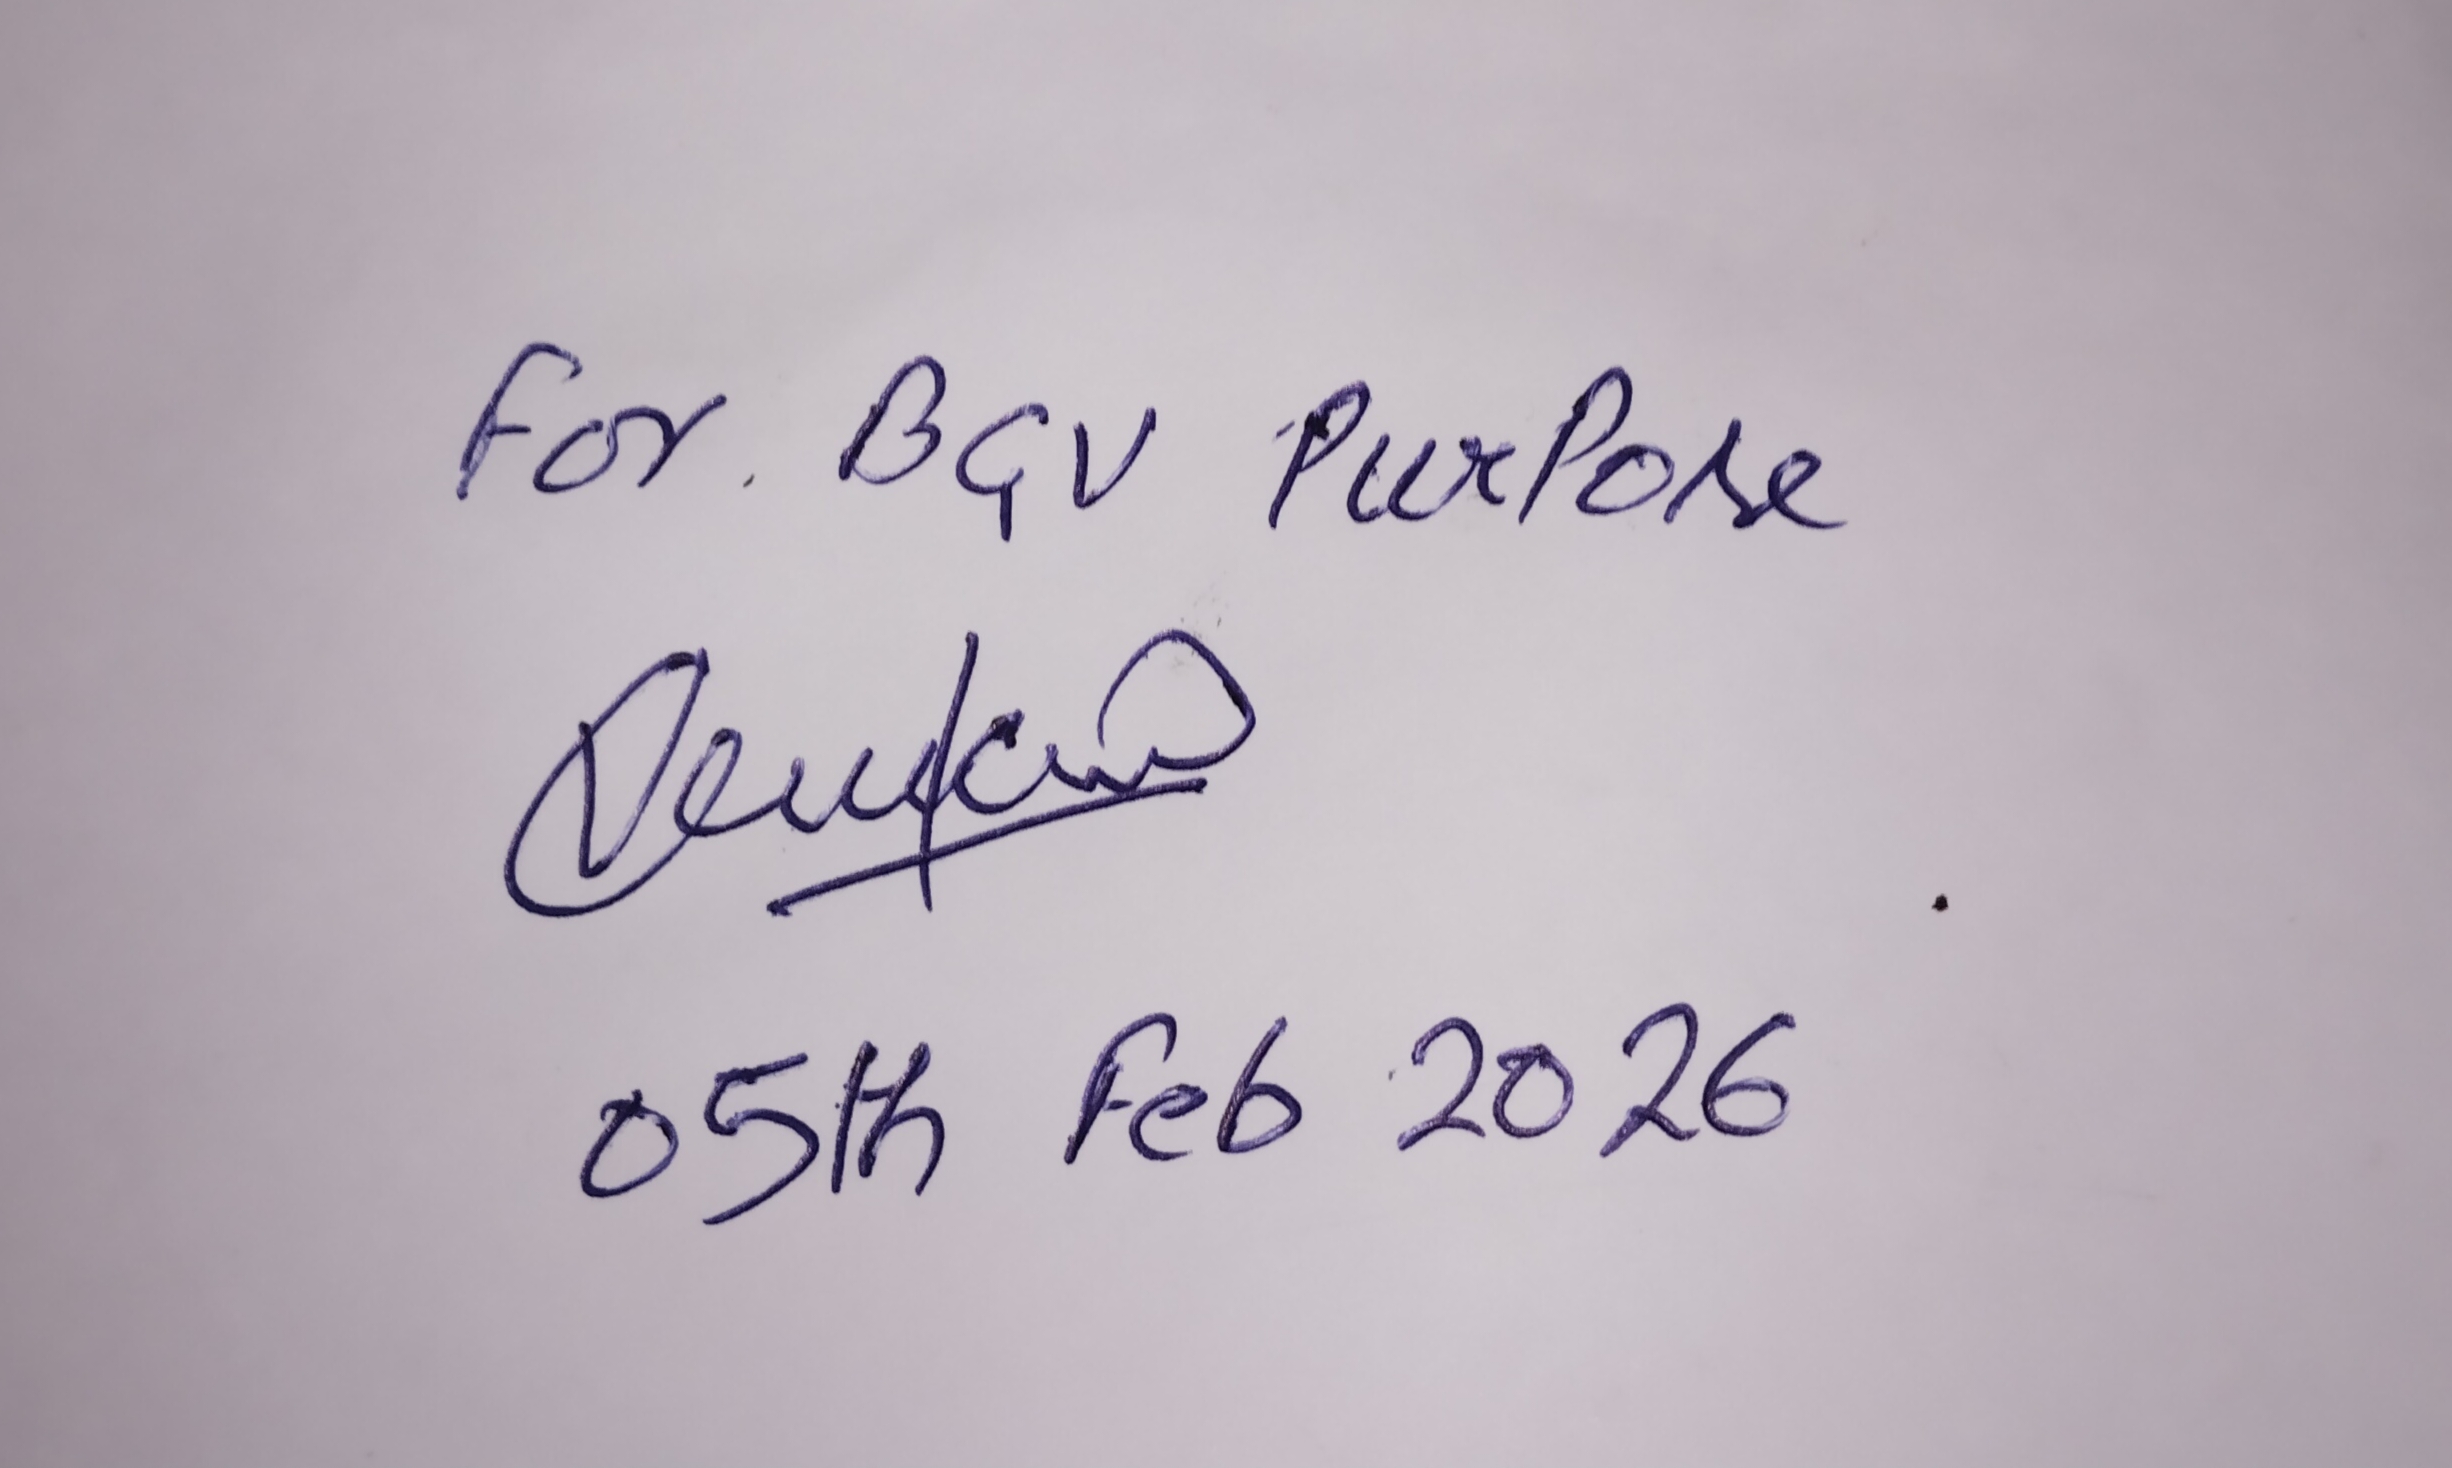 For BGV PurPose
05th Feb 2026